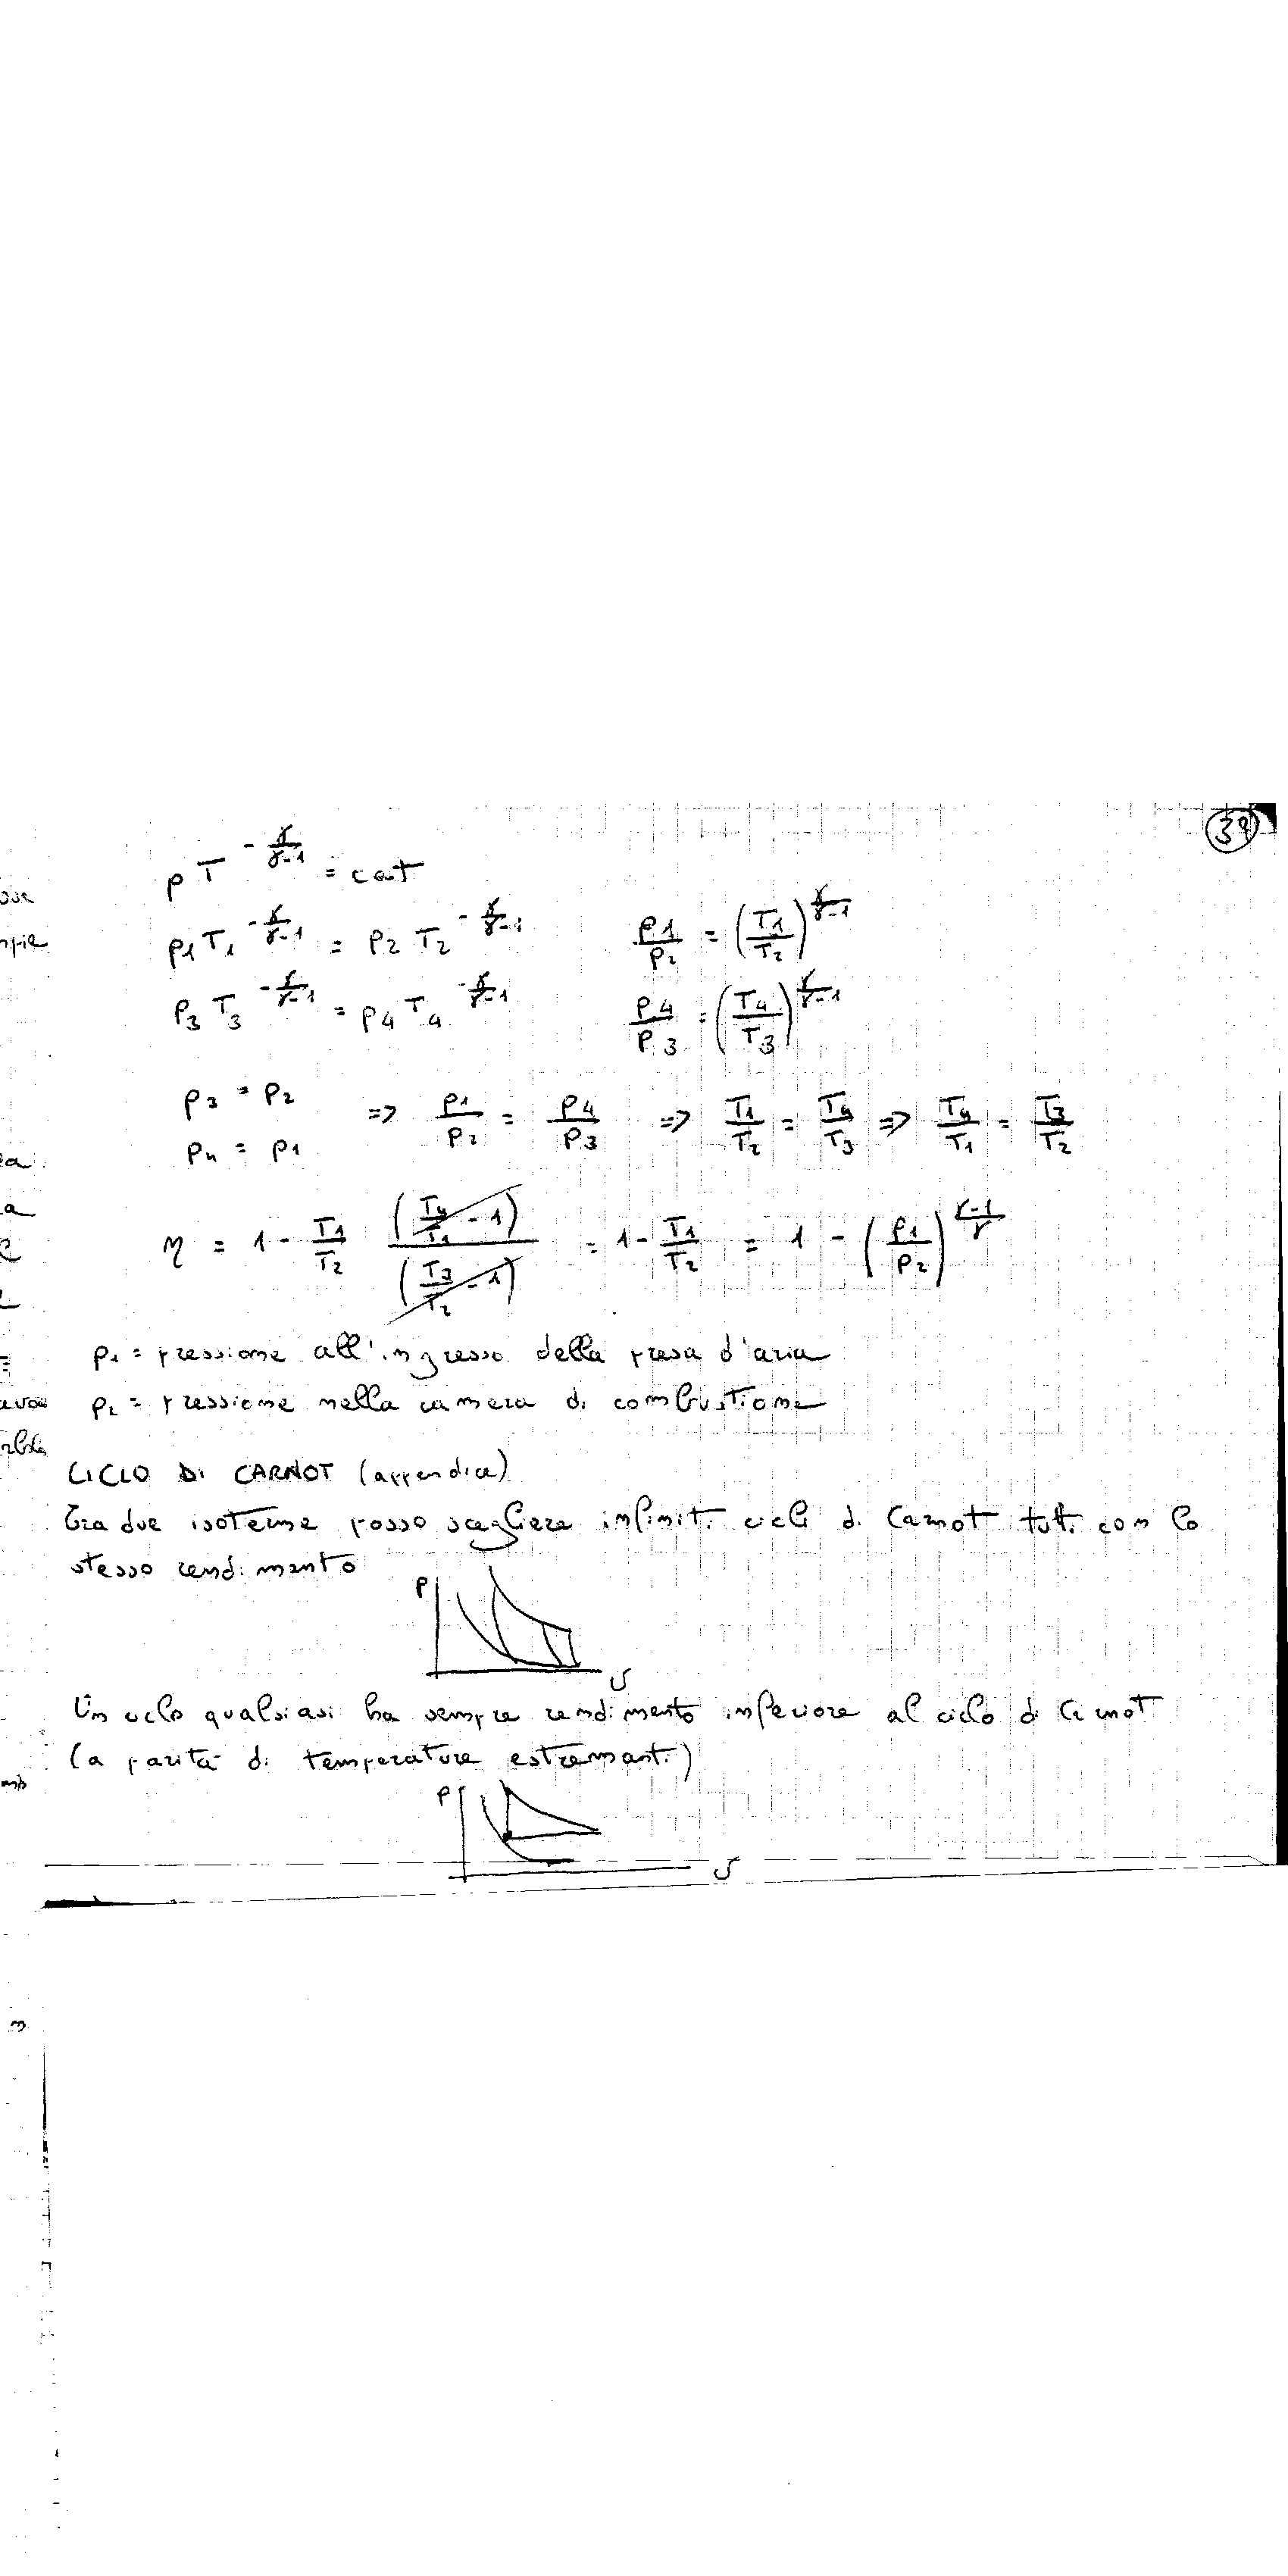 39
p T^(-γ/(γ-1)) = cost
p1 T1^(-γ/(γ-1)) = p2 T2^(-γ/(γ-1))    p1/p2 = (T1/T2)^(γ/(γ-1))
p3 T3^(-γ/(γ-1)) = p4 T4^(-γ/(γ-1))    p4/p3 = (T4/T3)^(γ/(γ-1))
p3 = p2
p4 = p1    => p1/p2 = p4/p3 => T1/T2 = T4/T3 => T4/T1 = T3/T2
η = 1 - T1/T2 (T4/T1 - 1)/(T3/T2 - 1) = 1 - T1/T2 = 1 - (p1/p2)^((γ-1)/γ)
p1 = pressione all'ingresso della presa d'aria
p2 = pressione nella camera di combustione
CICLO DI CARNOT (appendice)
Tra due isoterme posso scegliere infiniti cicli di Carnot tutti con lo
stesso rendimento
P
v
Un ciclo qualsiasi ha sempre rendimento inferiore al ciclo di Carnot
(a parità di temperature estremanti)
P
v